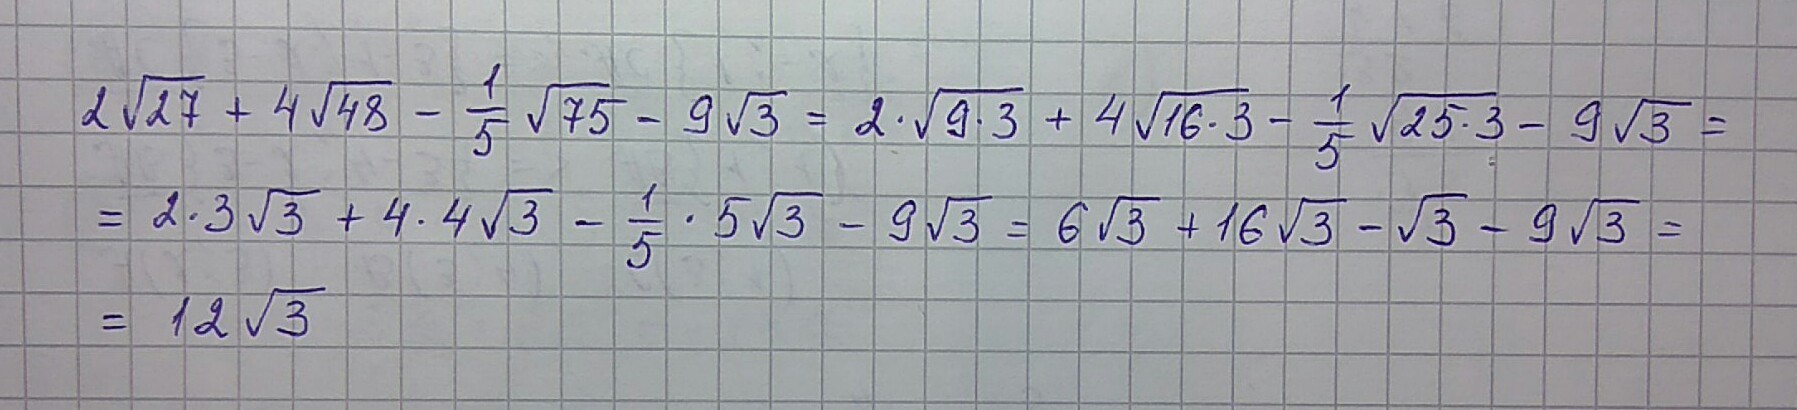 2√27 + 4√48 - 1/5 √75 - 9√3 = 2·√9·3 + 4√16·3 - 1/5 √25·3 - 9√3 =
= 2·3√3 + 4·4√3 - 1/5 · 5√3 - 9√3 = 6√3 + 16√3 - √3 - 9√3 =
= 12√3